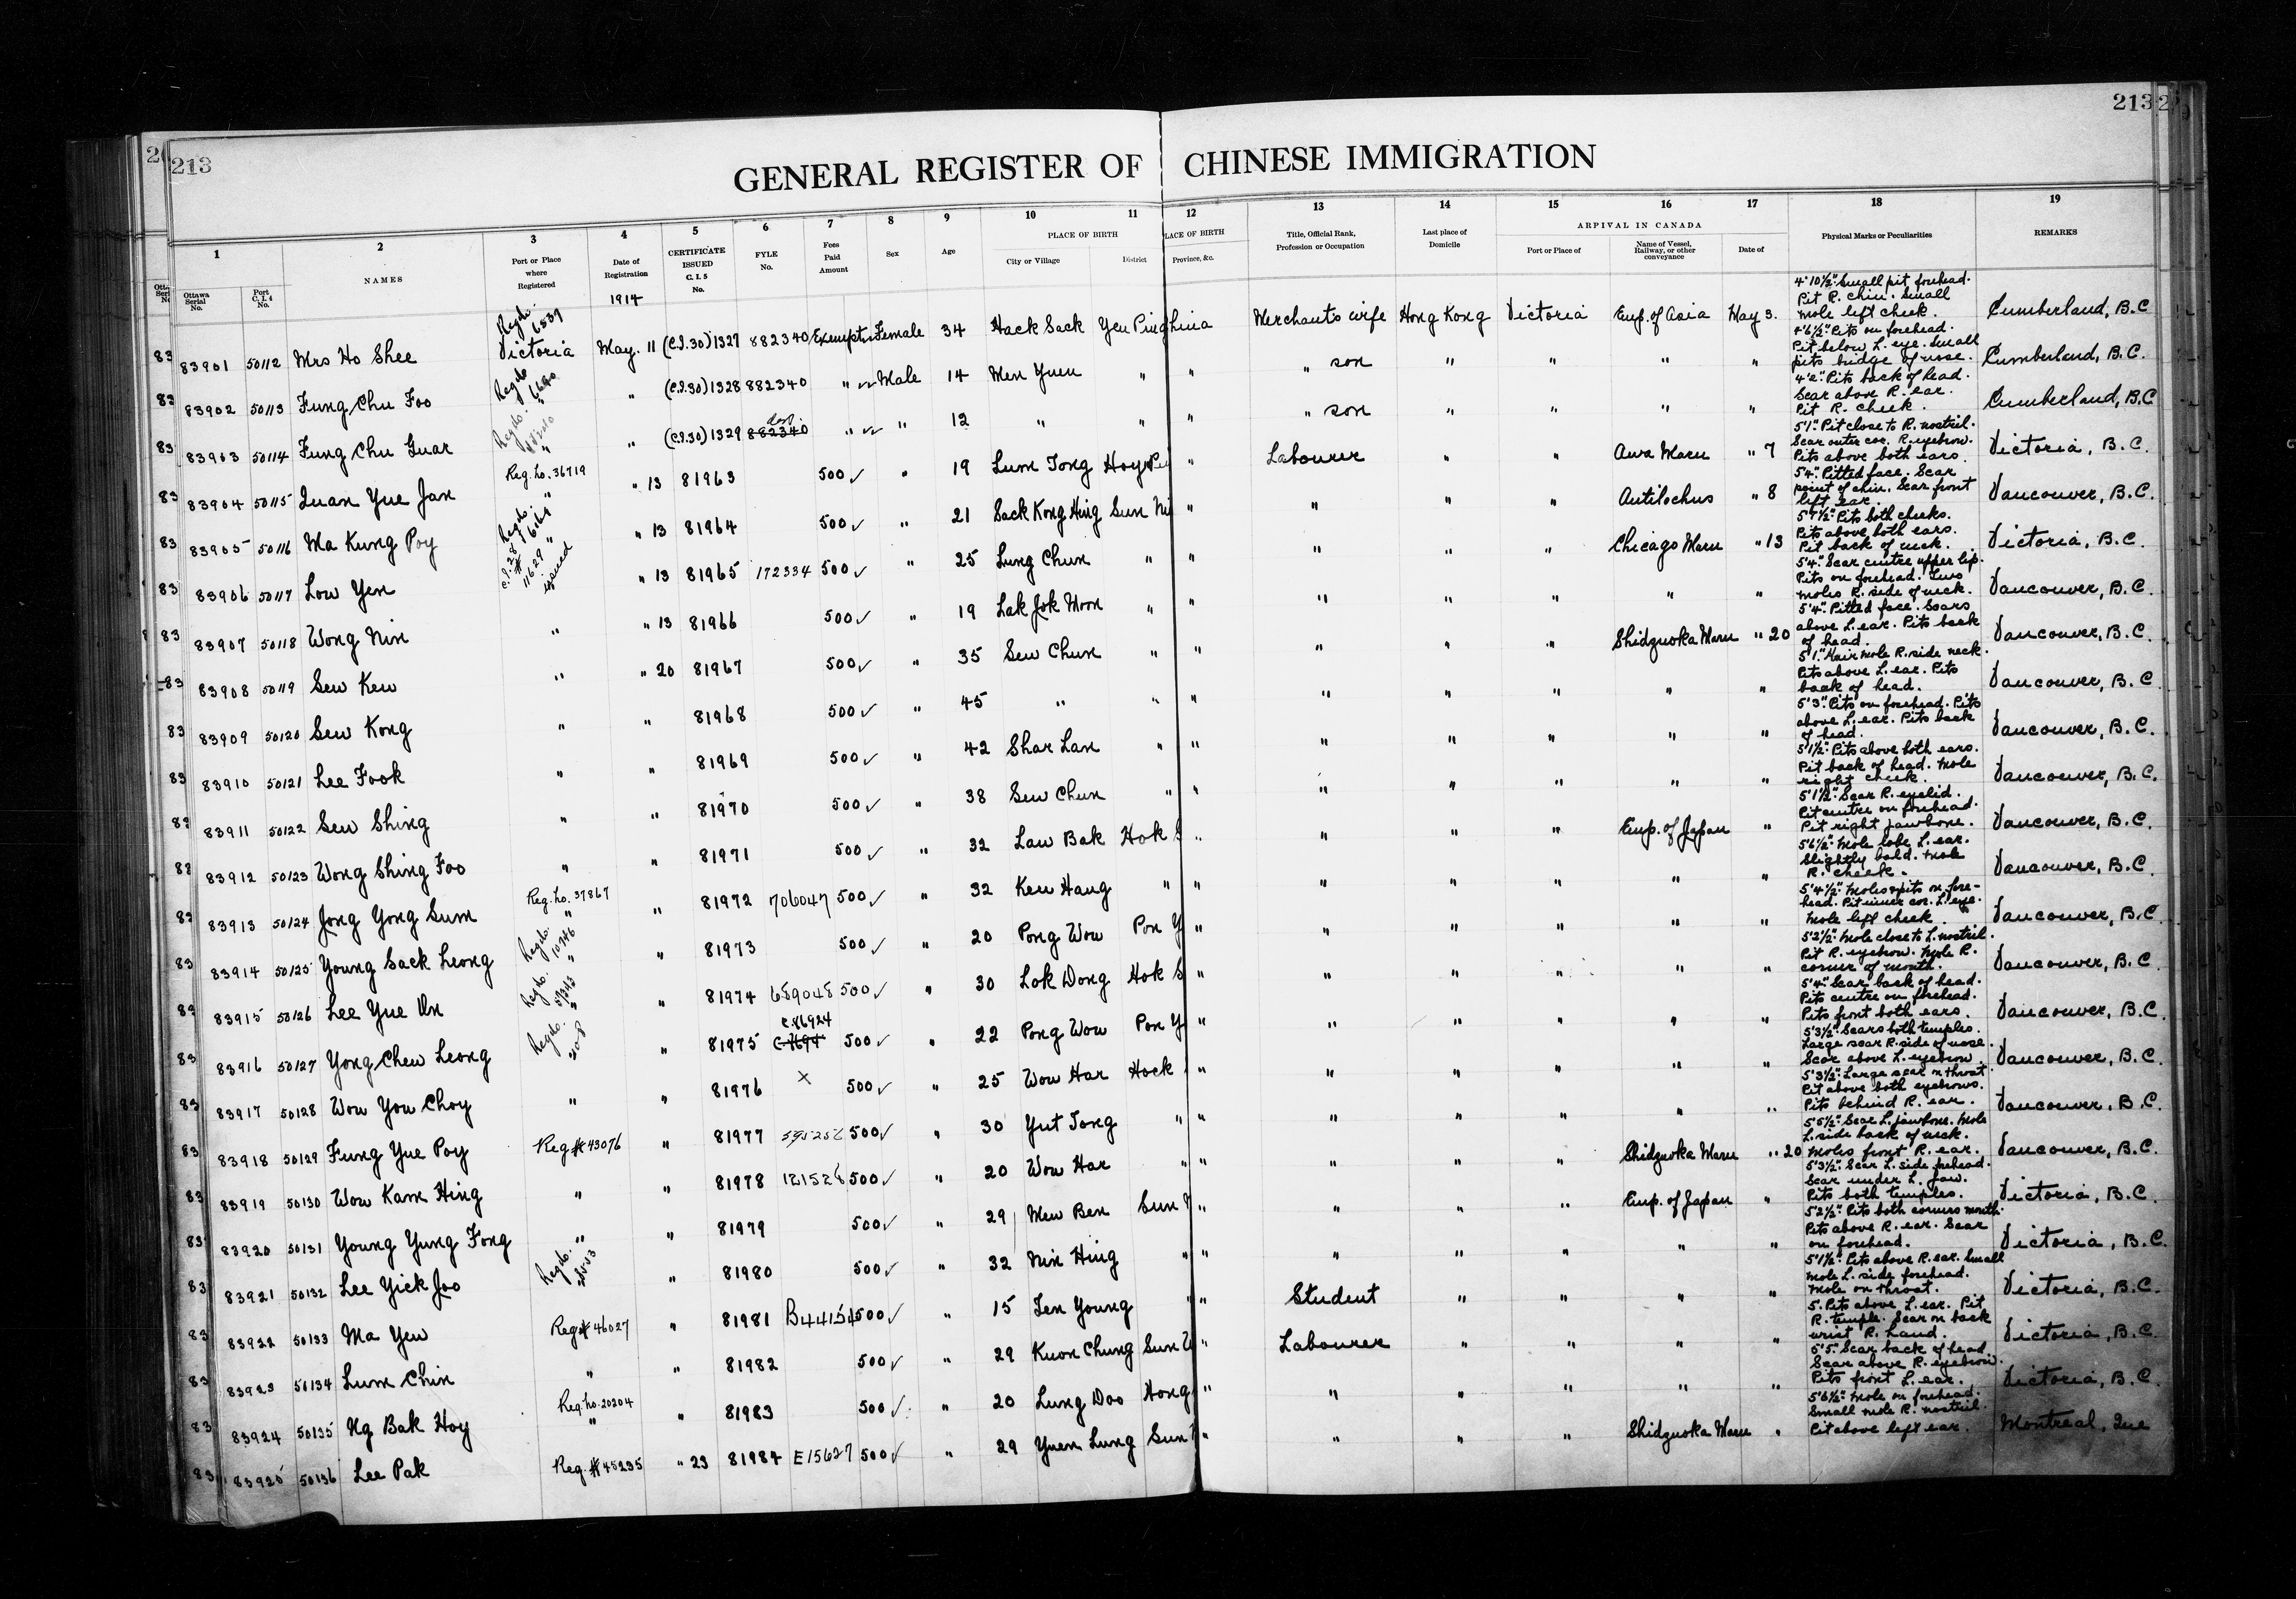 213
213
GENERAL REGISTER OF CHINESE IMMIGRATION
1 2 3 4 5 6 7 8 9 10 11 12 13 14 15 16 17 18 19
Ottawa Serial No. Port C. I. 4 No. NAMES Port or Place where Registered Date of Registration CERTIFICATE ISSUED C. I. 5 No. FYLE No. Fees Paid Amount Sex Age PLACE OF BIRTH City or Village District PLACE OF BIRTH Province, &c. Title, Official Rank, Profession or Occupation Last place of Domicile ARRIVAL IN CANADA Port or Place of Name of Vessel, Railway, or other conveyance Date of Physical Marks or Peculiarities REMARKS
1914
83901 50112 Mrs Ho Shee Regdo. 6539 Victoria May. 11 (C.I.30) 1327 882340 Exempt Female 34 Hack Sack Yen Ping China Merchants wife Hong Kong Victoria Emp. of Asia May 3. 4'10½" Small pit forehead. Pit R. chin. Small mole left cheek. Cumberland, B.C
83902 50113 Fung Chu Foo Regdo 6640 " " (C.I.30) 1328 882340 " Male 14 Men Yuen " " " son " " " " 4'6½" Pits on forehead. Pit below L. eye. Small pits bridge of nose. Cumberland, B.C.
83903 50114 Fung Chu Guar Regdo. " " (C.I.30) 1329 882340 " " 12 " " " " son " " " " 4'2" Pits back of head. Scar above R. ear. Pit R. cheek. Cumberland, B.C
83904 50115 Quan Yue Jan Reg. no. 36719 " " 13 81963 500 ✓ " 19 Lum Tong Hoy Pei " Labourer " " Awa Maru " 7 5'1" Pit close to R. nostril. Scar outer cor. R. eyebrow. Pits above both ears. Victoria, B.C.
83905 50116 Ma Kung Poy Regdo. 6661 " " 13 81964 500 ✓ " 21 Sack Kong Hing Sun Ni " " " " Antilochus " 8 5'4" Pitted face. Scar point of chin. Scar front left ear. Vancouver, B.C.
83906 50117 Low Yen C.I.28 # 11629 issued " 13 81965 172334 500 ✓ " 25 Lung Chun " " " " " Chicago Maru " 13 5'7½" Pits both cheeks. Pits above both ears. Pit back of neck. Victoria, B.C.
83907 50118 Wong Nin " " 13 81966 500 ✓ " 19 Lak Jok Moon " " " " " " " 5'4" Scar centre upper lip. Pits on forehead. Two moles R. side of neck. Vancouver, B.C.
83908 50119 Sew Kew " " 20 81967 500 ✓ " 35 Sew Chun " " " " " Shidzuoka Maru " 20 5'4" Pitted face. Scars above L. ear. Pits back of head. Vancouver, B.C.
83909 50120 Sew Kong " " 81968 500 ✓ " 45 " " " " " " " " 5'1" Hair mole R. side neck. Pits above L. ear. Pits back of head. Vancouver, B.C
83910 50121 Lee Fook " " 81969 500 ✓ " 42 Shar Lan " " " " " " " 5'3" Pits on forehead. Pits above L. ear. Pits back of head. Vancouver, B.C.
83911 50122 Sew Shing " " 81970 500 ✓ " 38 Sew Chun " " " " " " " 5'1½" Pits above both ears. Pit back of head. Mole right cheek. Vancouver, B.C.
83912 50123 Wong Shing Foo " " 81971 500 ✓ " 32 Law Bak Hok S " " " " Emp. of Japan " 5'1½" Scar R. eyelid. Pit centre on forehead. Pit right jawbone. Vancouver, B.C.
83913 50124 Jong Yong Sum Reg. no. 37867 " " 81972 706047 500 ✓ " 32 Ken Hang " " " " " " " 5'6½" Mole lobe L. ear. Slightly bald. Mole R. cheek. Vancouver, B.C.
83914 50125 Young Sack Leong Regdo. 10746 " " 81973 500 ✓ " 20 Pong Wow Pon Y " " " " " " 5'4½" Moles & pits on forehead. Pit inner cor. L. eye. Mole left cheek. Vancouver, B.C
83915 50126 Lee Yue Un Regdo. " " 81974 689048 500 ✓ " 30 Lok Dong Hok S " " " " " " 5'2½" Mole close to L. nostril. Pit R. eyebrow. Mole R. corner of mouth. Vancouver, B.C
83916 50127 Yong Chew Leong Regdo. " 81975 C.86924 500 ✓ " 22 Pong Wow Pon Y " " " " " " 5'4" Scar back of head. Pits centre on forehead. Pits front both ears. Vancouver, B.C.
83917 50128 Wow You Choy " " 81976 X 500 ✓ " 25 Wow Har Hock " " " " " " 5'3½" Scars both temples. Large scar R. side of nose. Scar above L. eyebrow. Vancouver, B.C.
83918 50129 Fung Yue Poy Reg # 43076 " 81977 595256 500 ✓ " 30 Yut Tong " " " " " " " 5'3½" Large scar on throat. Pit above both eyebrows. Pits behind R. ear. Vancouver, B.C.
83919 50130 Wow Kam Hing " " 81978 121528 500 ✓ " 20 Wow Har " " " " " Shidzuoka Maru " 20 5'5½" Scar L. jawbone. Mole L. side back of neck. Moles front R. ear. Vancouver, B.C.
83920 50131 Young Yung Fong " " 81979 500 ✓ " 29 Mew Ben Sun " " " " Emp. of Japan " 5'3½" Scar L. side forehead. Scar under L. jaw. Pits both temples. Victoria, B.C.
83921 50132 Lee Yick Joo Regdo. " 81980 500 ✓ " 32 Nin Hing " " " " " " " 5'2½" Pits both corners mouth. Pits above R. ear. Scar on forehead. Victoria, B.C.
83922 50133 Ma Yew Reg # 46027 " 81981 B44154 500 ✓ " 15 Ten Young " " Student " " " " 5'1½" Pits above R. ear. Small mole L. side forehead. Mole on throat. Victoria, B.C.
83923 50134 Lum Chin " " 81982 500 ✓ " 29 Kuon Chung Sun W " Labourer " " " " 5' Pits above L. ear. Pit R. temple. Scar on back wrist R. hand. Victoria, B.C.
83924 50135 Ng Bak Hoy Reg. no. 20204 " " 81983 500 ✓ " 20 Lung Doo Hong " " " " " " 5'5" Scar back of head Scar above R. eyebrow. Pits front L. ear. Victoria, B.C.
83925 50136 Lee Pak Reg. # 45235 " 23 81984 E15627 500 ✓ " 29 Yuen Lung Sun " " " " Shidzuoka Maru " 5'6½" Mole on forehead. Small mole R. nostril. Pit above left ear. Montreal, Que